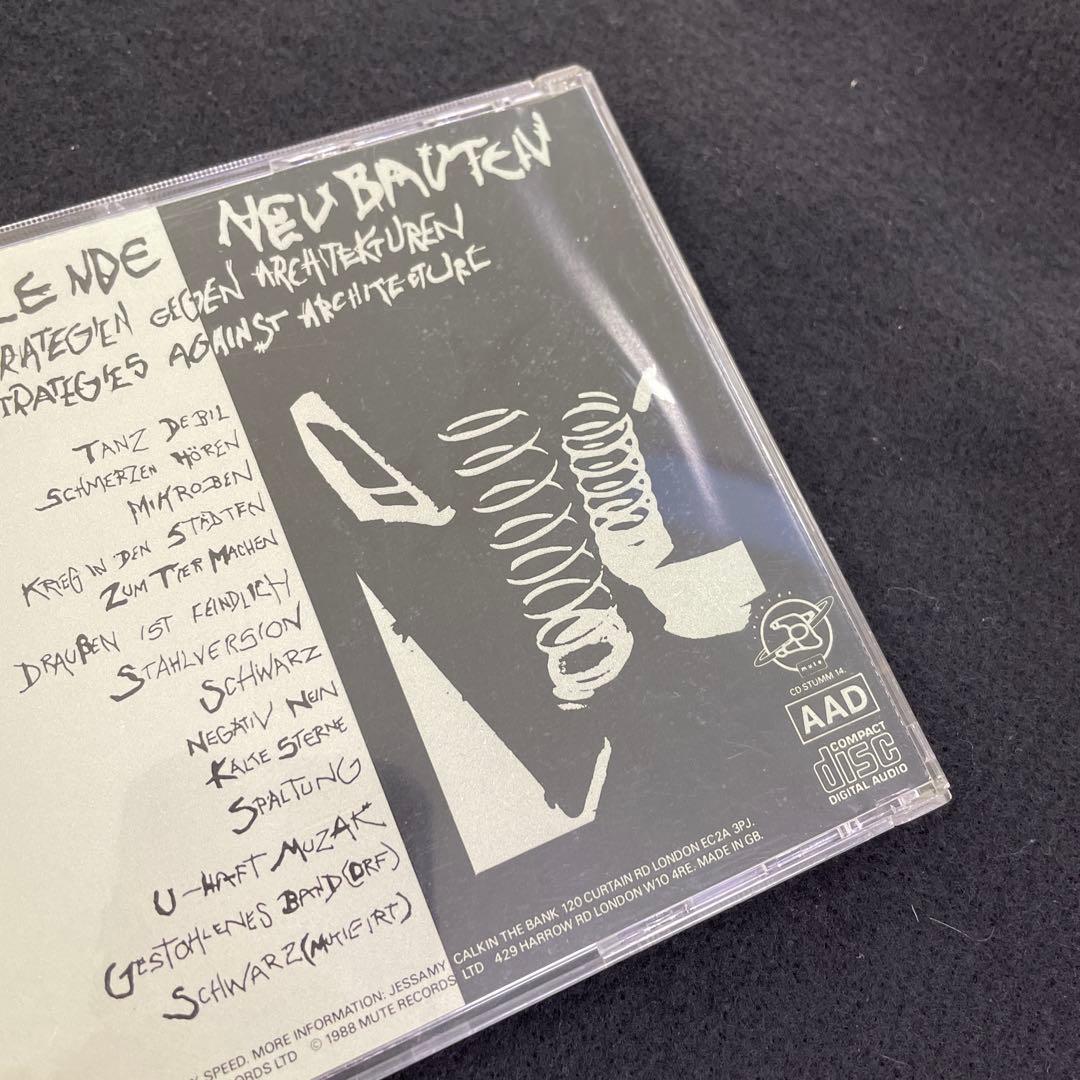 LENDE NEUBAUTEN
RATEGIEN GEGEN ARCHITEKTUREN
TRATEGIES AGAINST ARCHITECTURE
TANZ DEBIL
SCHMERZEN HÖREN
MIKROBEN
KRIEG IN DEN STÄDTEN
ZUM TIER MACHEN
DRAUßEN IST FEINDLICH
STAHLVERSION
SCHWARZ
NEGATIV NEIN
KALTE STERNE
SPALTUNG
U-HAFT MUZAK
GESTOHLENES BAND (ORF)
SCHWARZ (MUTIERT)
mute
CD STUMM 14.
AAD
COMPACT
disc
DIGITAL AUDIO
SPEED. MORE INFORMATION: JESSAMY CALKIN THE BANK 120 CURTAIN RD LONDON EC2A 3PJ.
ORDS LTD © 1988 MUTE RECORDS LTD 429 HARROW RD LONDON W10 4RE. MADE IN GB.